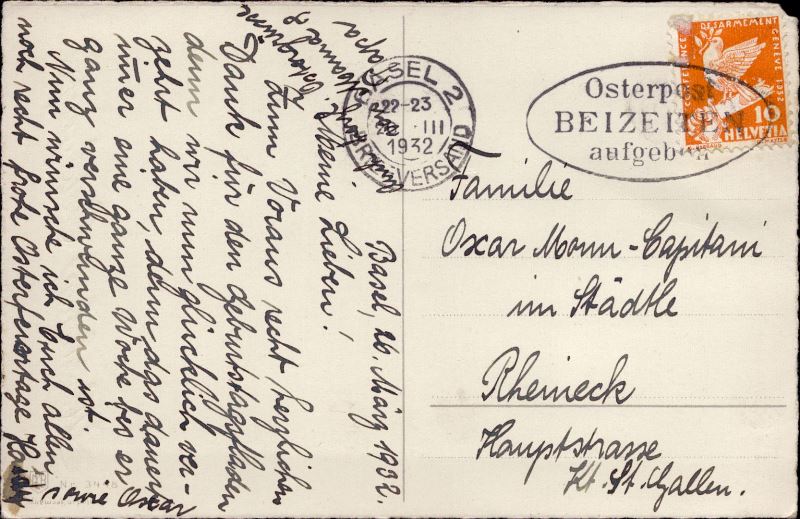 Basel, 26. März 1932.
Meine Lieben!
Zum Voraus recht herzlichen
Dank für den Geburtstagsfladen
denn wir nun glücklich ver-
zehrt haben, denn das dauert
immer eine ganze Woche bis er
ganz verschwunden ist.
Nun wünsche ich Euch allen
noch recht frohe Osterfeiertage
sowie Oscar
Ostergrüsse
Papa
BASEL 2
22-23
III
1932
BRIEFVERSAND
Osterpost
BEIZEITEN
aufgeben
CONFERENCE DU DESARMEMENT GENEVE 1932
10
HELVETIA
Familie
Oscar Monn-Capitani
im Städtle
Rheineck
Hauptstrasse
Kt. St. Gallen.